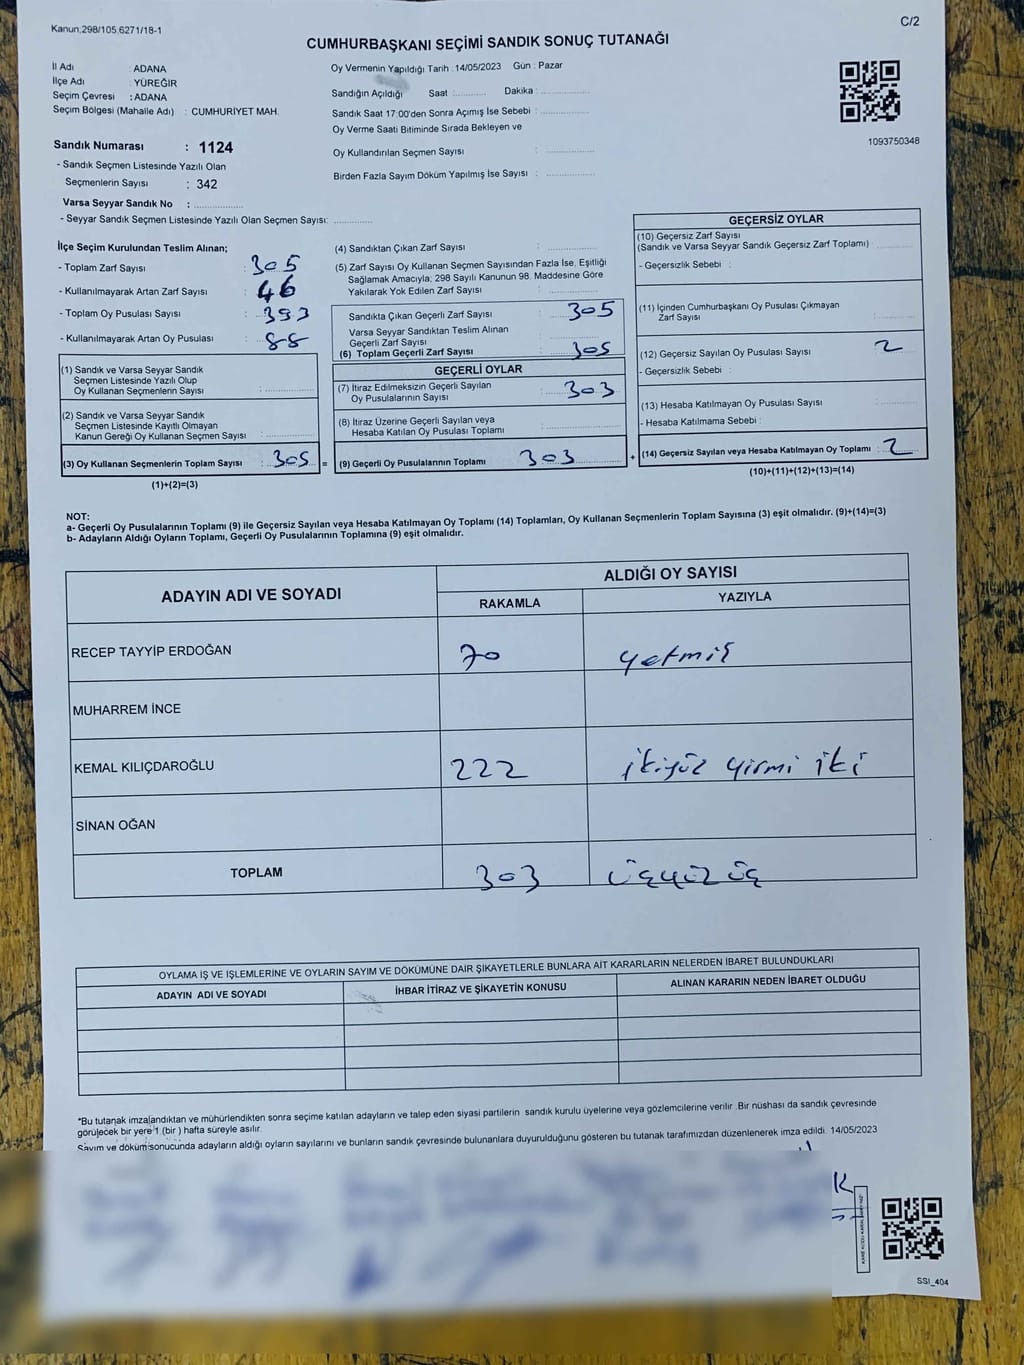 Kanun;298/105,6271/18-1
C/2
CUMHURBAŞKANI SEÇİMİ SANDIK SONUÇ TUTANAĞI
İl Adı : ADANA
İlçe Adı : YÜREĞİR
Seçim Çevresi : ADANA
Seçim Bölgesi (Mahalle Adı) : CUMHURİYET MAH.
Sandık Numarası : 1124
- Sandık Seçmen Listesinde Yazılı Olan
Seçmenlerin Sayısı : 342
Varsa Seyyar Sandık No :
- Seyyar Sandık Seçmen Listesinde Yazılı Olan Seçmen Sayısı:
Oy Vermenin Yapıldığı Tarih : 14/05/2023 Gün : Pazar
Sandığın Açıldığı Saat : Dakika :
Sandık Saat 17:00'den Sonra Açımış İse Sebebi :
Oy Verme Saati Bitiminde Sırada Bekleyen ve
Oy Kullandırılan Seçmen Sayısı :
Birden Fazla Sayım Döküm Yapılmış İse Sayısı :
1093750348
İlçe Seçim Kurulundan Teslim Alınan;
- Toplam Zarf Sayısı : 305
- Kullanılmayarak Artan Zarf Sayısı : 46
- Toplam Oy Pusulası Sayısı : 393
- Kullanılmayarak Artan Oy Pusulası : 88
(1) Sandık ve Varsa Seyyar Sandık
Seçmen Listesinde Yazılı Olup
Oy Kullanan Seçmenlerin Sayısı :
(2) Sandık ve Varsa Seyyar Sandık
Seçmen Listesinde Kayıtlı Olmayan
Kanun Gereği Oy Kullanan Seçmen Sayısı :
(3) Oy Kullanan Seçmenlerin Toplam Sayısı : 305 =
(1)+(2)=(3)
(4) Sandıktan Çıkan Zarf Sayısı :
(5) Zarf Sayısı Oy Kullanan Seçmen Sayısından Fazla İse, Eşitliği
Sağlamak Amacıyla; 298 Sayılı Kanunun 98. Maddesine Göre
Yakılarak Yok Edilen Zarf Sayısı :
Sandıkta Çıkan Geçerli Zarf Sayısı : 305
Varsa Seyyar Sandıktan Teslim Alınan
Geçerli Zarf Sayısı :
(6) Toplam Geçerli Zarf Sayısı : 305
GEÇERLİ OYLAR
(7) İtiraz Edilmeksizin Geçerli Sayılan
Oy Pusulalarının Sayısı : 303
(8) İtiraz Üzerine Geçerli Sayılan veya
Hesaba Katılan Oy Pusulası Toplamı :
(9) Geçerli Oy Pusulalarının Toplamı : 303 +
GEÇERSİZ OYLAR
(10) Geçersiz Zarf Sayısı
(Sandık ve Varsa Seyyar Sandık Geçersiz Zarf Toplamı) :
- Geçersizlik Sebebi :
(11) İçinden Cumhurbaşkanı Oy Pusulası Çıkmayan
Zarf Sayısı :
(12) Geçersiz Sayılan Oy Pusulası Sayısı : 2
- Geçersizlik Sebebi :
(13) Hesaba Katılmayan Oy Pusulası Sayısı :
- Hesaba Katılmama Sebebi :
(14) Geçersiz Sayılan veya Hesaba Katılmayan Oy Toplamı : 2
(10)+(11)+(12)+(13)=(14)
NOT:
a- Geçerli Oy Pusulalarının Toplamı (9) ile Geçersiz Sayılan veya Hesaba Katılmayan Oy Toplamı (14) Toplamları, Oy Kullanan Seçmenlerin Toplam Sayısına (3) eşit olmalıdır. (9)+(14)=(3)
b- Adayların Aldığı Oyların Toplamı, Geçerli Oy Pusulalarının Toplamına (9) eşit olmalıdır.
ADAYIN ADI VE SOYADI
ALDIĞI OY SAYISI
RAKAMLA YAZIYLA
RECEP TAYYİP ERDOĞAN 70 yetmiş
MUHARREM İNCE
KEMAL KILIÇDAROĞLU 222 ikiyüz yirmi iki
SİNAN OĞAN
TOPLAM 303 üçyüz üç
OYLAMA İŞ VE İŞLEMLERİNE VE OYLARIN SAYIM VE DÖKÜMÜNE DAİR ŞİKAYETLERLE BUNLARA AİT KARARLARIN NELERDEN İBARET BULUNDUKLARI
ADAYIN ADI VE SOYADI İHBAR İTİRAZ VE ŞİKAYETİN KONUSU ALINAN KARARIN NEDEN İBARET OLDUĞU
*Bu tutanak imzalandıktan ve mühürlendikten sonra seçime katılan adayların ve talep eden siyasi partilerin sandık kurulu üyelerine veya gözlemcilerine verilir .Bir nüshası da sandık çevresinde
görülecek bir yere 1 (bir ) hafta süreyle asılır.
Sayım ve döküm sonucunda adayların aldığı oyların sayılarını ve bunların sandık çevresinde bulunanlara duyurulduğunu gösteren bu tutanak tarafımızdan düzenlenerek imza edildi. 14/05/2023
SSI_404